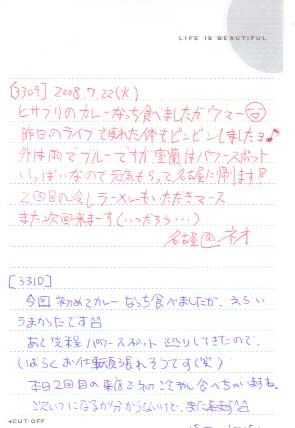 LIFE IS BEAUTIFUL
[3309] 2008.7.22(火)
ヒサブリのカレーなっち食べましたがウマー
昨日のライブで疲れた体もピンピンしましたヨ♪
外は雨でブルーですが室蘭はパワースポット
いっぱいなので元気もらって名古屋に帰ります!
2回目の冷しラーメンもいただきマース
また次回来まーす(いつだろう…)
名古屋の ネオ
[3310]
今回初めてカレーなっち食べましたが、えらい
うまかったです^^
あと先程パワースポット巡りしてきたので、
しばらくお仕事頑張れそうです(笑)
本日2回目の来店で
食べちがいますね。
次いつになるか分からないけど、また来ます^^
◂CUT OFF